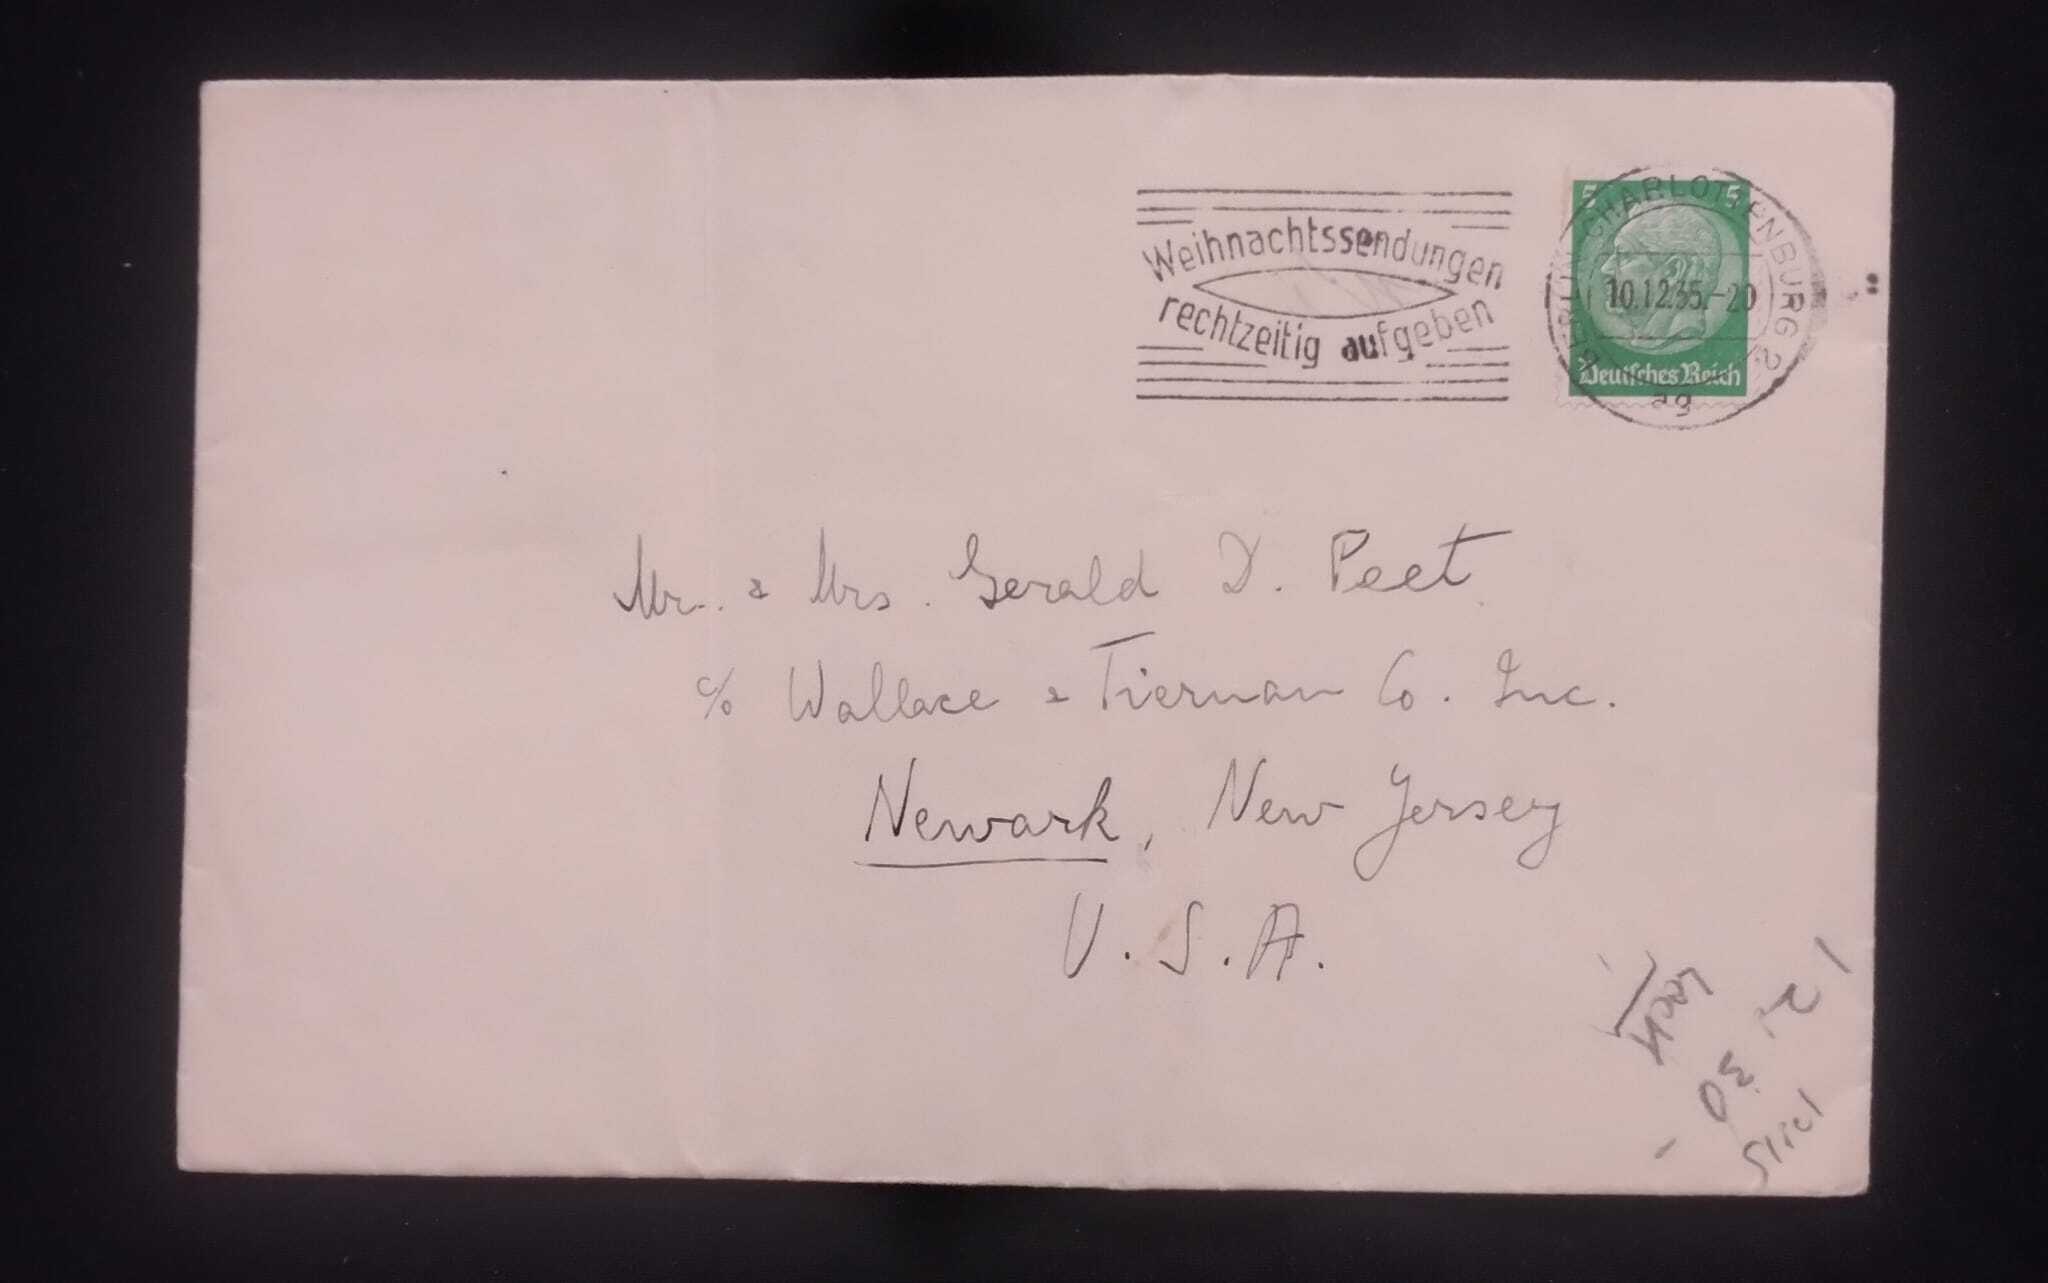 Weihnachtssendungen
rechtzeitig aufgeben
BERLIN-CHARLOTTENBURG 2
10.12.35.-20
ag
5 5
Deutsches Reich
Mr. & Mrs. Gerald D. Peet
c/o Wallace & Tiernan Co. Inc.
Newark, New Jersey
U.S.A.